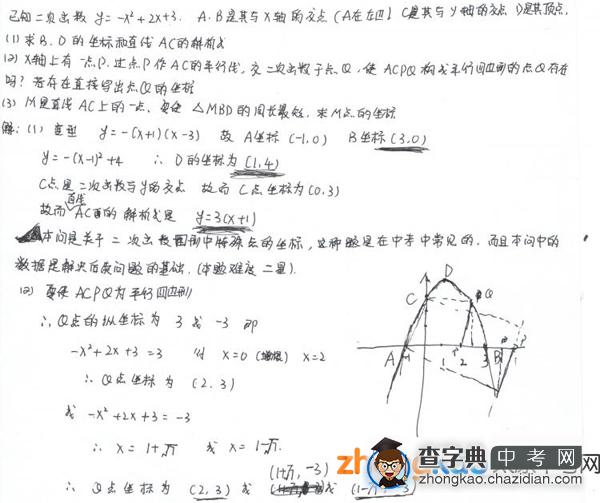 已知二次函数 y=-x²+2x+3. A.B是其与X轴的交点 (A在左边) C是其与y轴的交点 D是其顶点.
(1) 求B.D的坐标和直线AC的解析式
(2) X轴上有一点P.过点P作AC的平行线,交二次函数于点Q,使ACPQ构成平行四边形的点Q存在
吗?若存在直接写出点Q的坐标
(3) M是直线AC上的一点、要使 △MBD的周长最短,求M点的坐标
解:(1) 变型 y=-(x+1)(x-3) 故 A坐标 (-1,0) B坐标 (3,0)
y=-(x-1)²+4 ∴ D的坐标为 (1,4)
C点是二次函数与y的交点 故而C点坐标为(0,3)
故而直线AC的解析式是 y=3(x+1)
本问是关于二次函数图形中特殊点的坐标,这种题是在中考中常见的.而且本问中的
数据是解决后段问题的基础.(本题难度二星).
(2) 要使ACPQ为平行四边形
∴Q点的纵坐标为 3或-3 即
-x²+2x+3=3 则 x=0 (增根) x=2
∴Q点坐标为 (2,3)
或 -x²+2x+3=-3
∴ x=1+√7 或 x=1-√7.
(1+√7,-3)
∴ Q点坐标为 (2,3) 或 或
C D Q
A 1 2 3 B P
查字典 中考网
zhongkao.chazidian.com